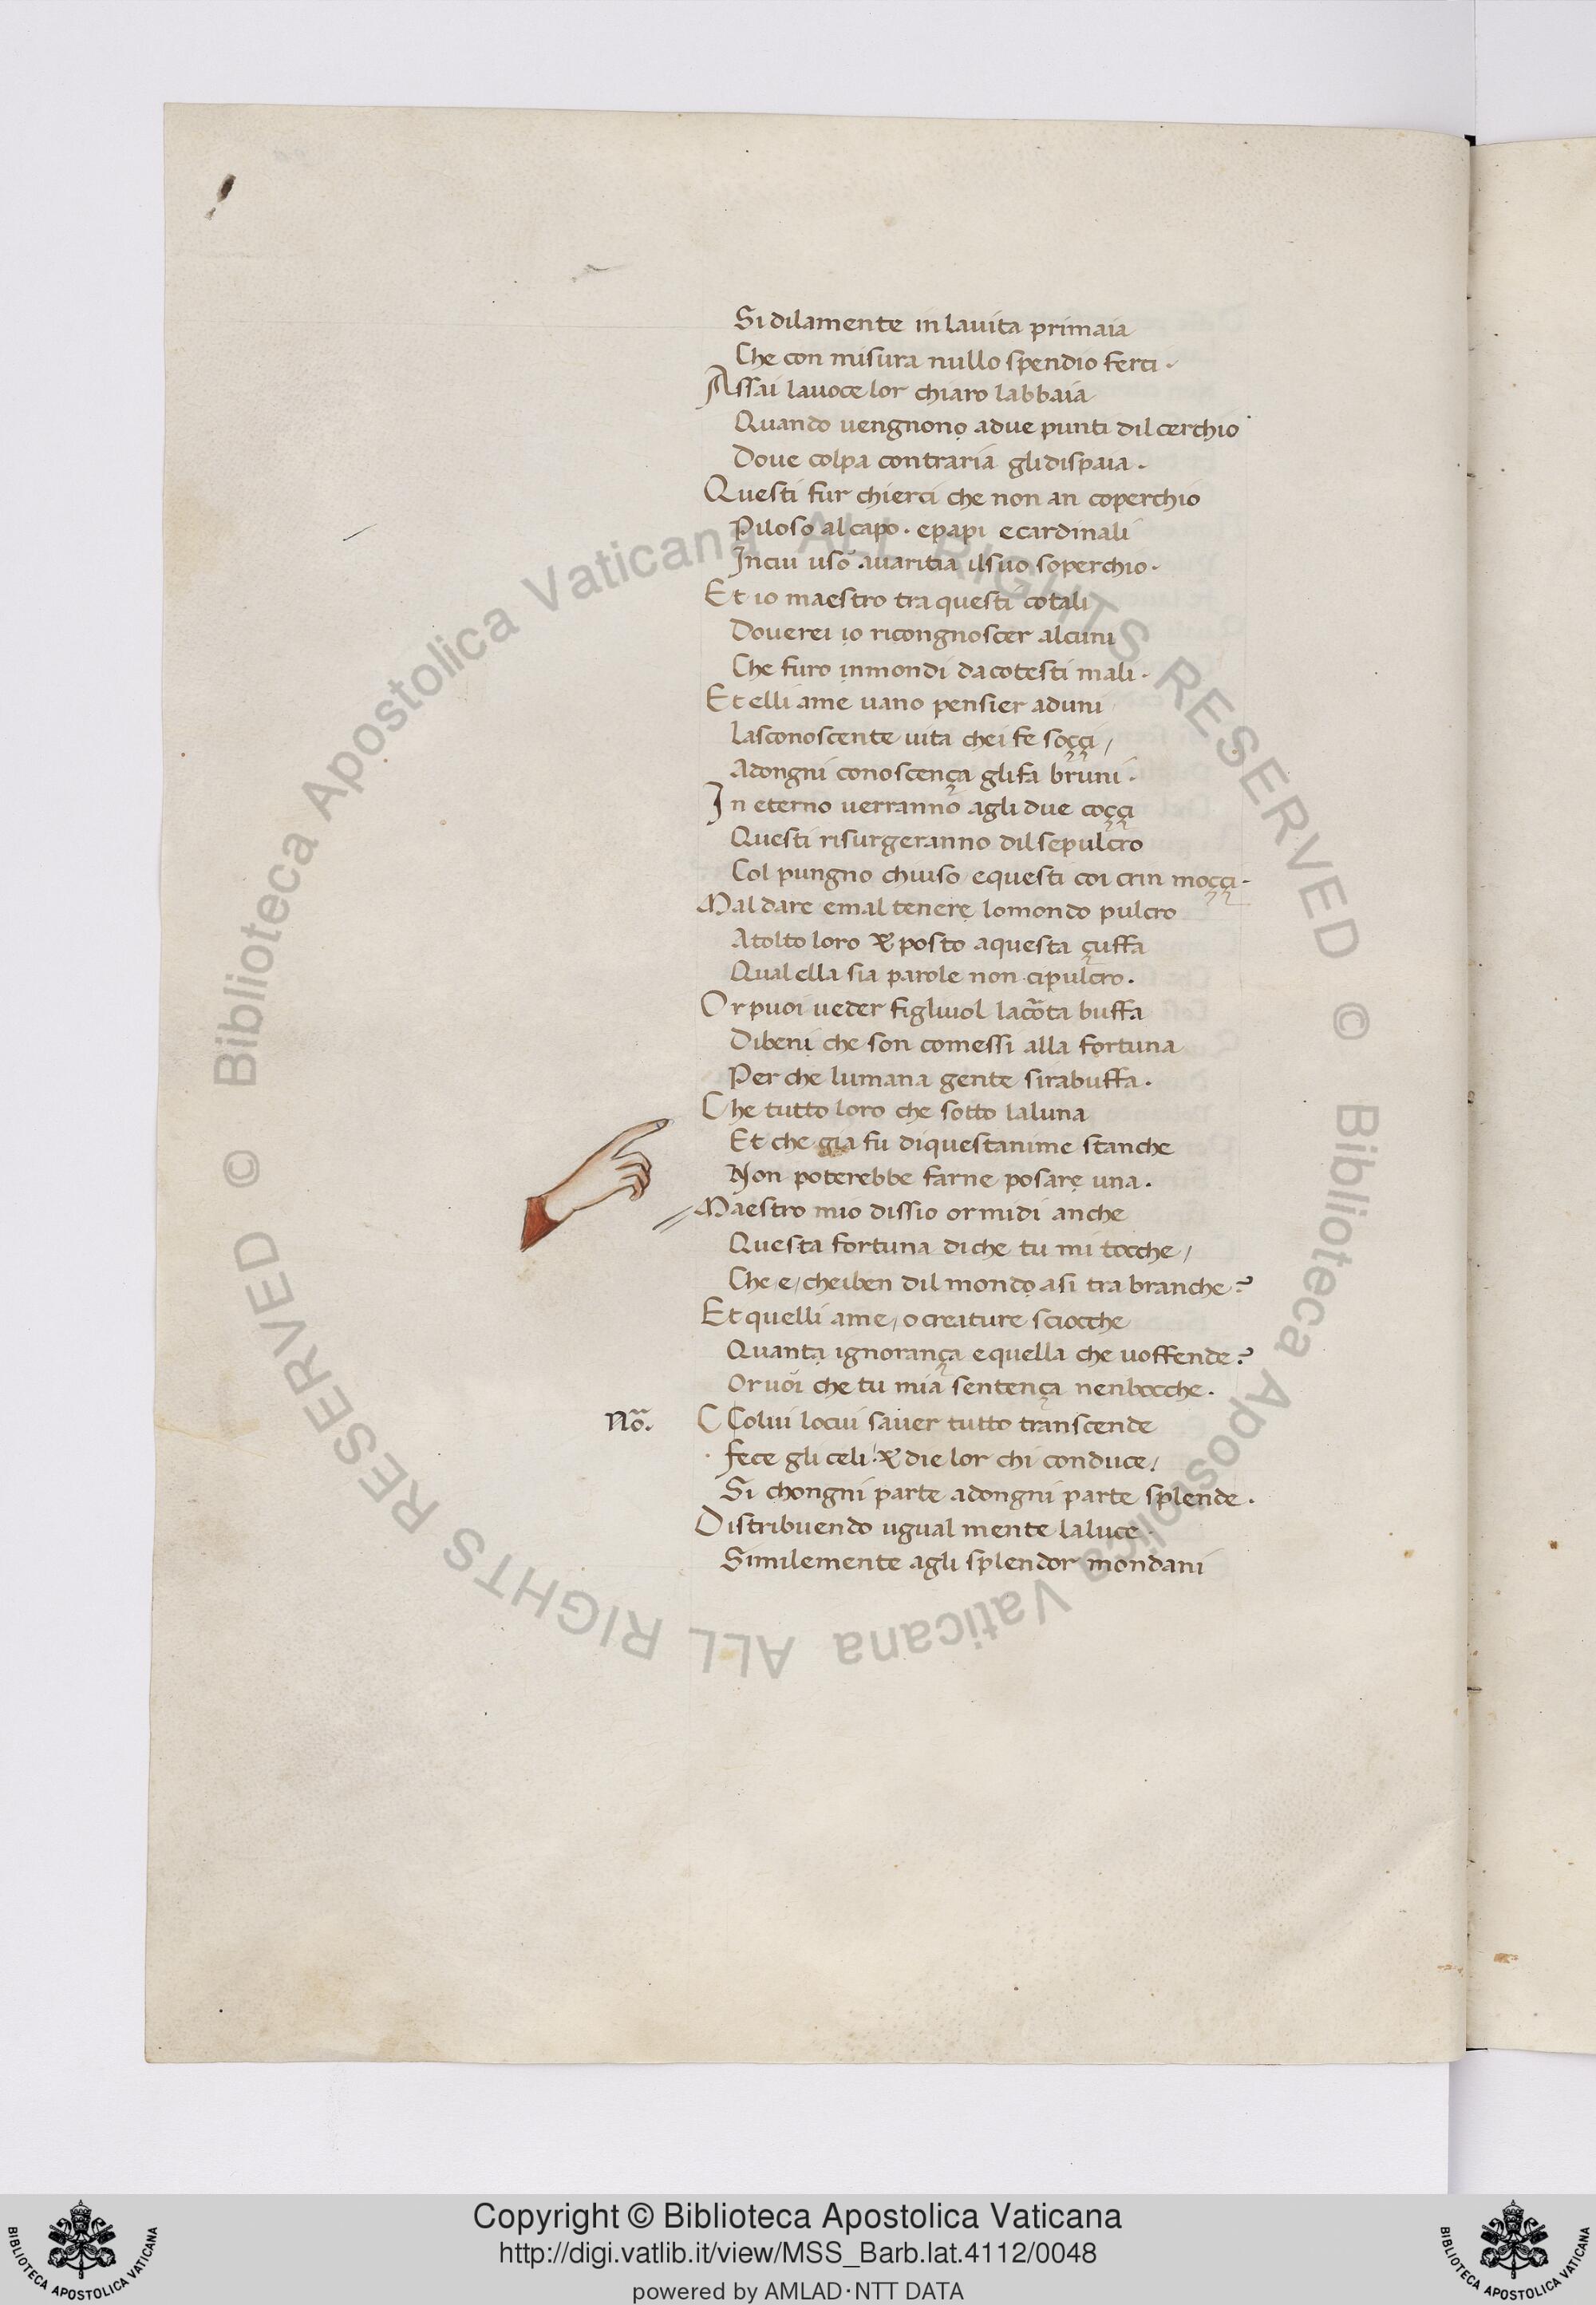 Si dilamente in lauita primaia
Che con misura nullo spendio ferci.
Assai lauoce lor chiaro labbaia
Quando uengnono adue punti dil cerchio
Doue colpa contraria gli dispaia.
Questi fur chierci che non an coperchio
Piloso al capo. epapi e cardinali
In cui uso auaritia il suo soperchio.
Et io maestro tra questi cotali
Douerei io ricongnoscer alcuni
Che furo inmondi da cotesti mali.
Et elli ame uano pensier aduni
Lasconoscente uita chei fe soççi/
Adongni conoscença gli fa bruni.
In eterno uerranno agli due coççi
Questi risurgeranno dil sepulcro
Col pungno chiuso equesti coi crin moççi.
Mal dare emal tenere lomondo pulcro
Atolto loro & posto aquesta çuffa
Qual ella sia parole non cipulcro.
Or puoi ueder figliuol lacõta buffa
Dibeni che son comessi alla fortuna
Per che lumana gente sirabuffa.
Che tutto loro che sotto laluna
Et che gia fu diquestanime stanche
Non poterebbe farne posare una.
Maestro mio dissio or midi anche
Questa fortuna di che tu mi tocche/
Che e/ cheiben dil mondo asi tra branche?
Et quelli ame/ o creature sciocche
Quanta ignorança e quella che uoffende?
Or uoi che tu mia sentença nenbocche.
Nõ. C Colui locui sauer tutto transcende
fece gli celi! & die lor chi conduce/
Si chongni parte adongni parte splende.
Distribuendo ugual mente laluce.
Similemente agli splendor mondani
© Biblioteca Apostolica Vaticana ALL RIGHTS RESERVED © Biblioteca Apostolica Vaticana ALL RIGHTS RESERVED
Copyright © Biblioteca Apostolica Vaticana
http://digi.vatlib.it/view/MSS_Barb.lat.4112/0048
powered by AMLAD·NTT DATA
BIBLIOTECA APOSTOLICA VATICANA
BIBLIOTECA APOSTOLICA VATICANA